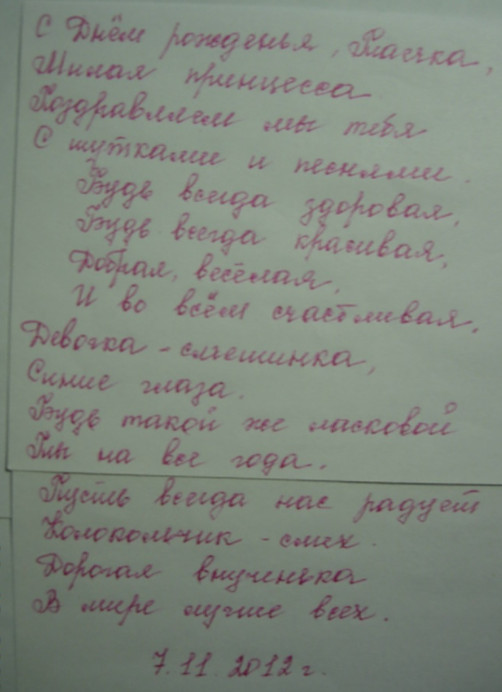 С Днём рожденья, Таська,
Милая принцесса
Поздравляем мы тебя
С шутками и песнями.
Будь всегда здоровая,
Будь всегда красивая,
Добрая, весёлая,
И во всём счастливая,
Девочка - смешинка,
Синие глаза.
Будь такой же ласковой
Ты на все года.
Пусть всегда нас радует
Колокольчик - смех.
Дорогая внученька
В мире лучше всех.
7.11.2012 г.